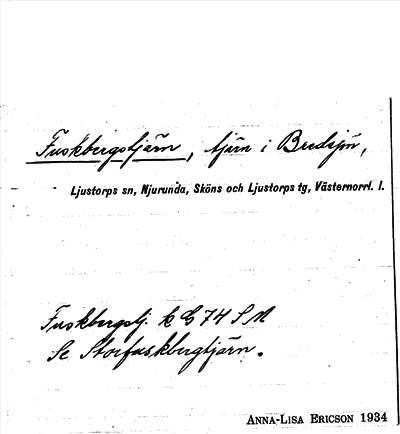 Fuskbergstjärn, tjärn i Bredsjön,
Ljustorps sn, Njurunda, Sköns och Ljustorps tg, Västernorrl. l.
Fuskbergstj. k G 74 S N
Se Storfuskbergtjärn.
ANNA-LISA ERICSON 1934